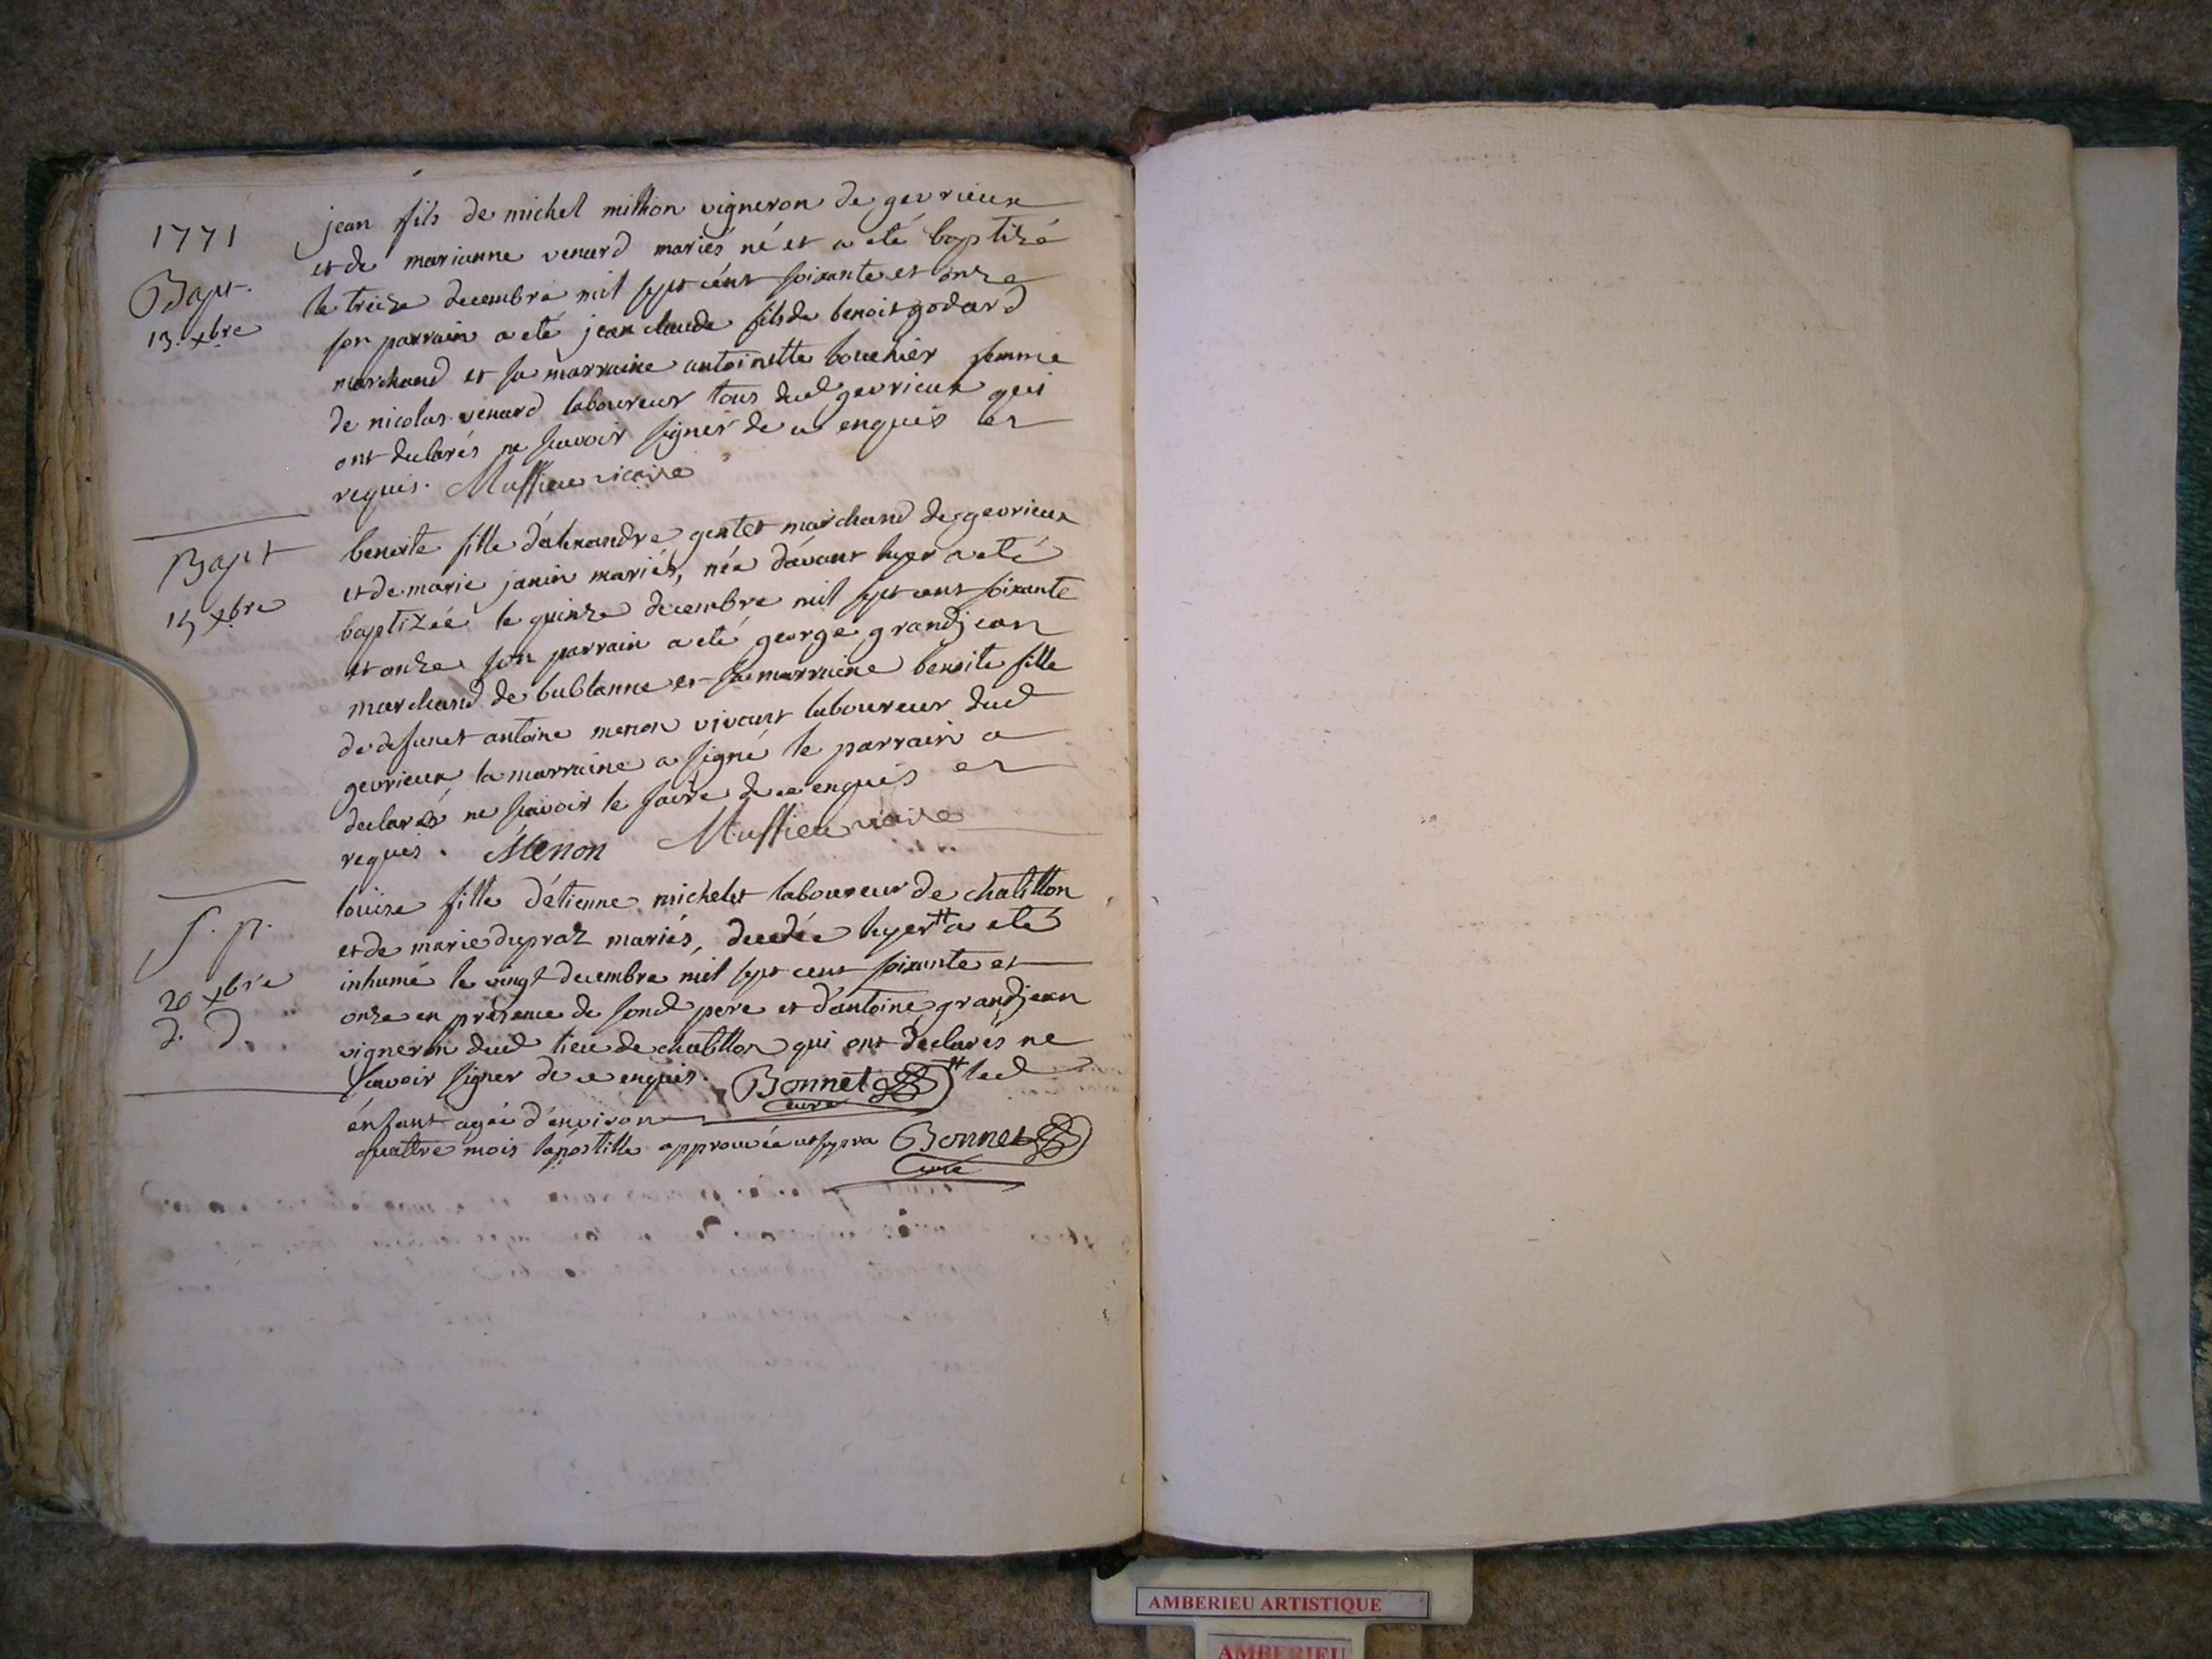 1771
Bapt.
13. xbre
jean fils de michel million vigneron de gevrieux
et de marianne venard mariés né et a eté baptizé
le treize decembre mil sept cent soixante et onze
son parrain a eté jean claude fils de benoit godard
marchand et sa marraine antoinette bouchier femme
de nicolas venard laboureur tous dud gevrieux qui
ont declarés ne scavoir signer de ce enquis et
requis. Muffieu vicaire
Bapt
15 xbre
benoite fille d'alexandre gentet marchand de gevrieux
et de marie janin mariés, née d'avant hyer a eté
baptizéé le quinze decembre mil sept cent soixante
et onze son parrain a eté george grandjean
marchand de bublanne et sa marraine benoite fille
de defunct antoine menon vivant laboureur dud
gevrieux la marraine a signé le parrain a
declaré ne scavoir le faire de ce enquis et
requis. Menon Muffieu vicaire
s. p.
20 xbre
d. d.
louize fille d'étienne michelet laboureur de chatillon
et de marie dupraz mariés, decedée hyer # a eté
inhumé le vingt decembre mil sept cent soixante et
onze en présence de sond pere et d'antoine grandjean
vigneron dud lieu de chatillon qui ont declarés ne
scavoir signer de ce enquis. Bonnet # led
curé
énfant agée d'environ
quattre mois l'apostille approuvée ut supra Bonnet
curé
AMBERIEU ARTISTIQUE
AMBERIEU